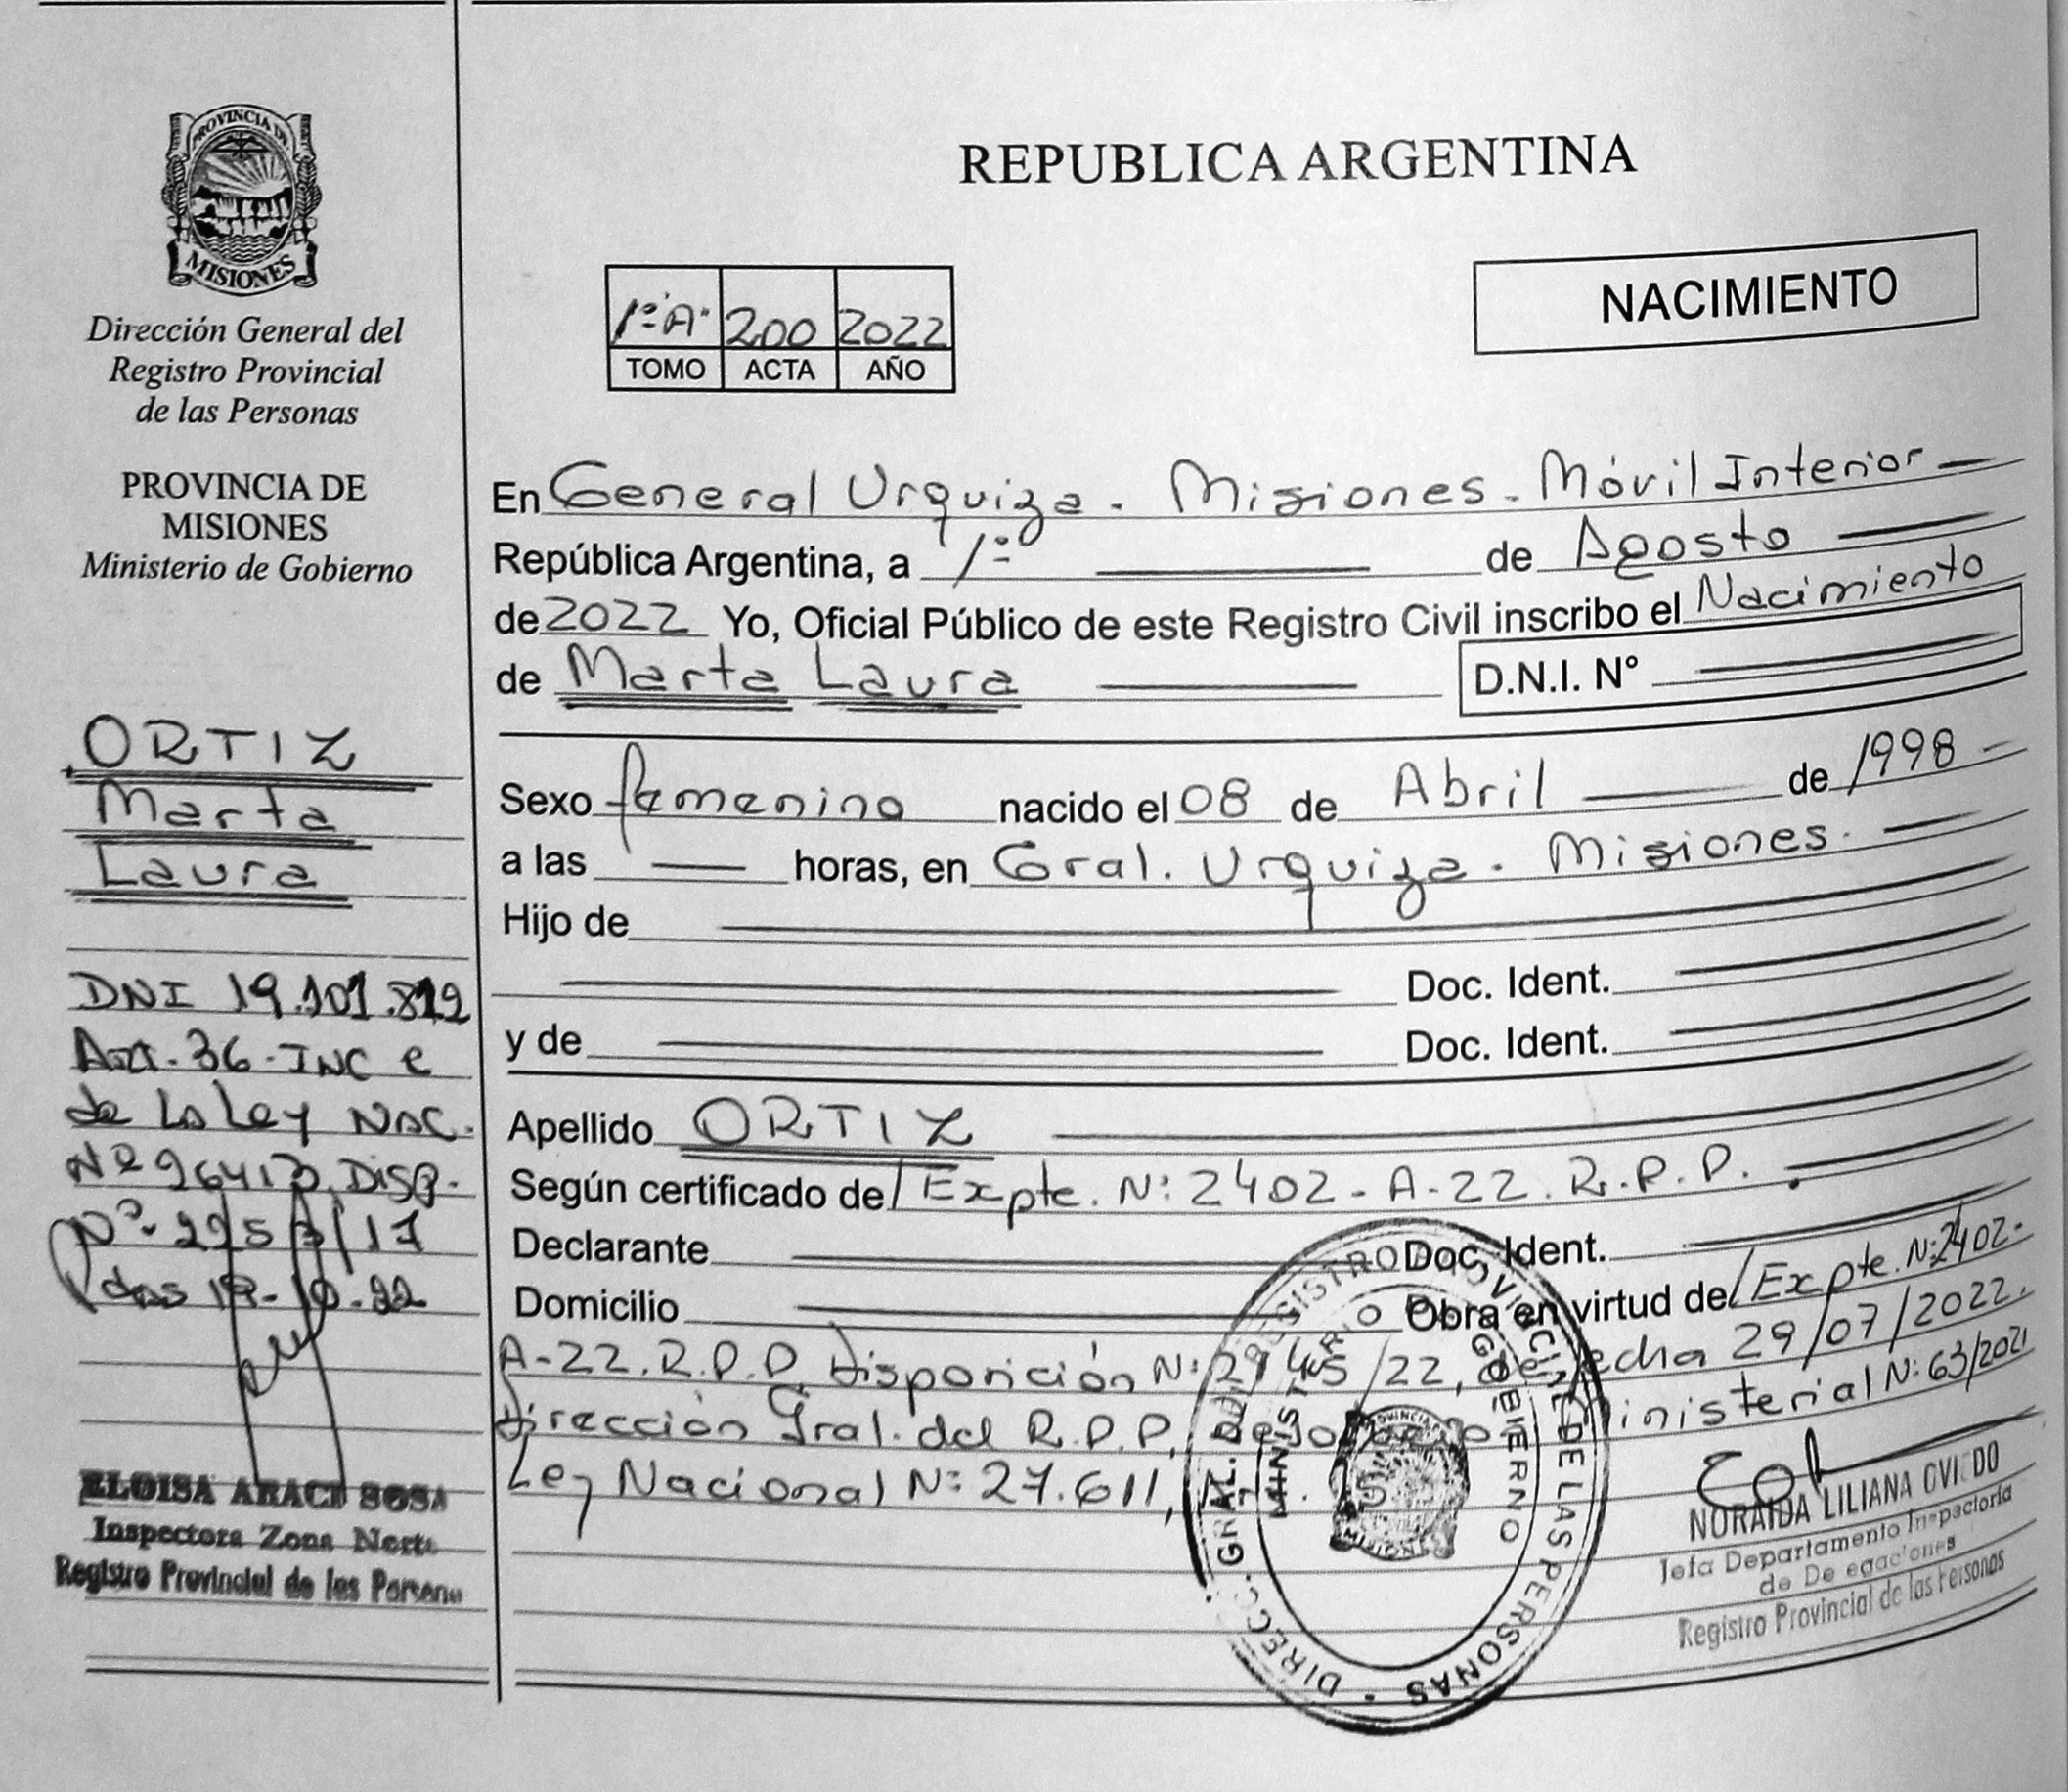 PROVINCIA DE
MISIONES
Dirección General del
Registro Provincial
de las Personas
PROVINCIA DE
MISIONES
Ministerio de Gobierno
ORTIZ
Marta
Laura
DNI 19.101.819
Art. 36 - INC e
de la Ley NAC.
Nº 26413. Disp.
Nº 2253/17
Pdas 19-10-22
ELOISA ARACI SOSA
Inspectora Zona Norte
Registro Provincial de las Persona
REPUBLICA ARGENTINA
NACIMIENTO
1º "A" 200 2022
TOMO ACTA AÑO
En General Urquiza - Misiones - Móvil Interior
República Argentina, a 1º de Agosto
de 2022 Yo, Oficial Público de este Registro Civil inscribo el Nacimiento
de Marta Laura D.N.I. N°
Sexo femenino nacido el 08 de Abril de 1998
a las horas, en Gral. Urquiza - Misiones.
Hijo de
Doc. Ident.
y de Doc. Ident.
Apellido ORTIZ
Según certificado de Expte. Nº 2402 - A - 22. R.P.P.
Declarante Doc. Ident.
Domicilio Obra en virtud de Expte. Nº 2402-
A-22. R.P.P. Disposición Nº 2145/22, de fecha 29/07/2022.
Dirección Gral. del R.P.P. Ministerial Nº 63/2021
Ley Nacional Nº 27.611,
DIRECC. GRAL. DEL REGISTRO PROVINCIAL DE LAS PERSONAS
MINISTERIO DE GOBIERNO
PROVINCIA DE
MISIONES
NORAIDA LILIANA OVIEDO
Jefa Departamento Inspectoría
de Delegaciones
Registro Provincial de las Personas